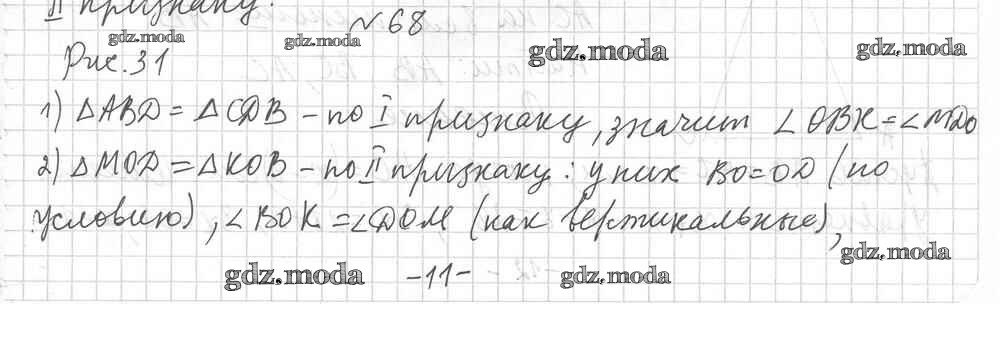 II признаку.
№68
Рис. 31
1) △ABD = △CDB - по I признаку, значит ∠OBK = ∠MDO
2) △MOD = △KOB - по II признаку: у них BO = OD (по
условию), ∠BOK = ∠DOM (как вертикальные),
-11-
gdz.moda
gdz.moda
gdz.moda
gdz.moda
gdz.moda
gdz.moda
gdz.moda